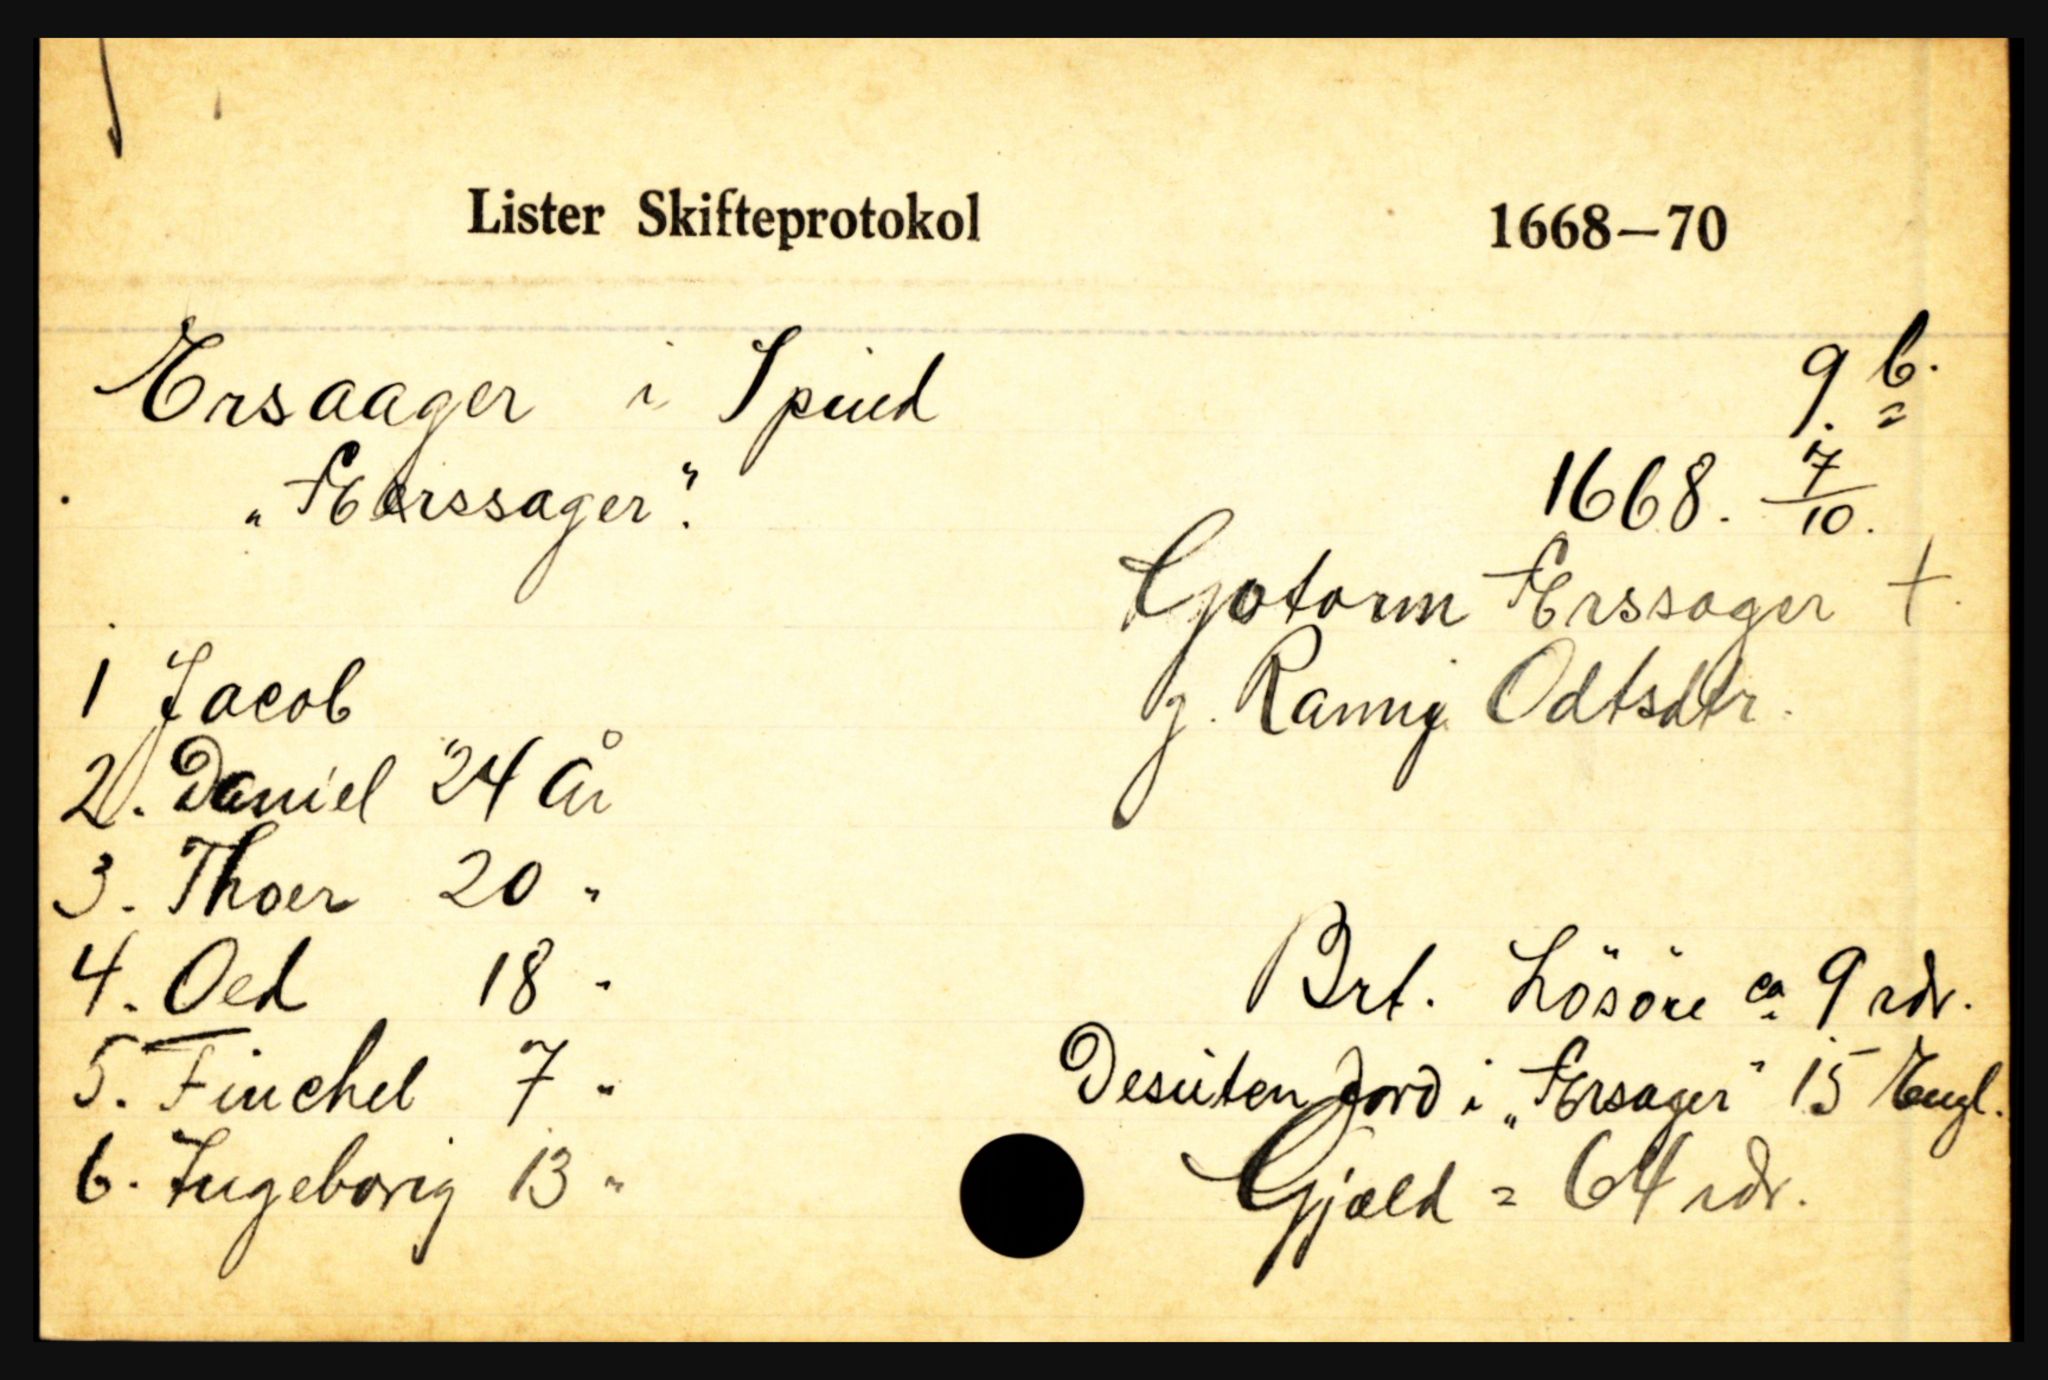 Lister Skifteprotokol 1668—70
Ersaager i Spind 9 b.
„Ærssager". 1668. 7/10.
Gotorm Ærssager +.
1 Jacob g. Rannj Odtsdtr.
2. Daniel 24 år
3. Thoer 20 "
4. Oed 18 " Brt. Lösöre ca 9 rdr.
5. Finchel 7 " Desuten Jord i „Ærsager" 15 Engl.
6. Ingeborig 13 " Gjæld = 64 rdr.